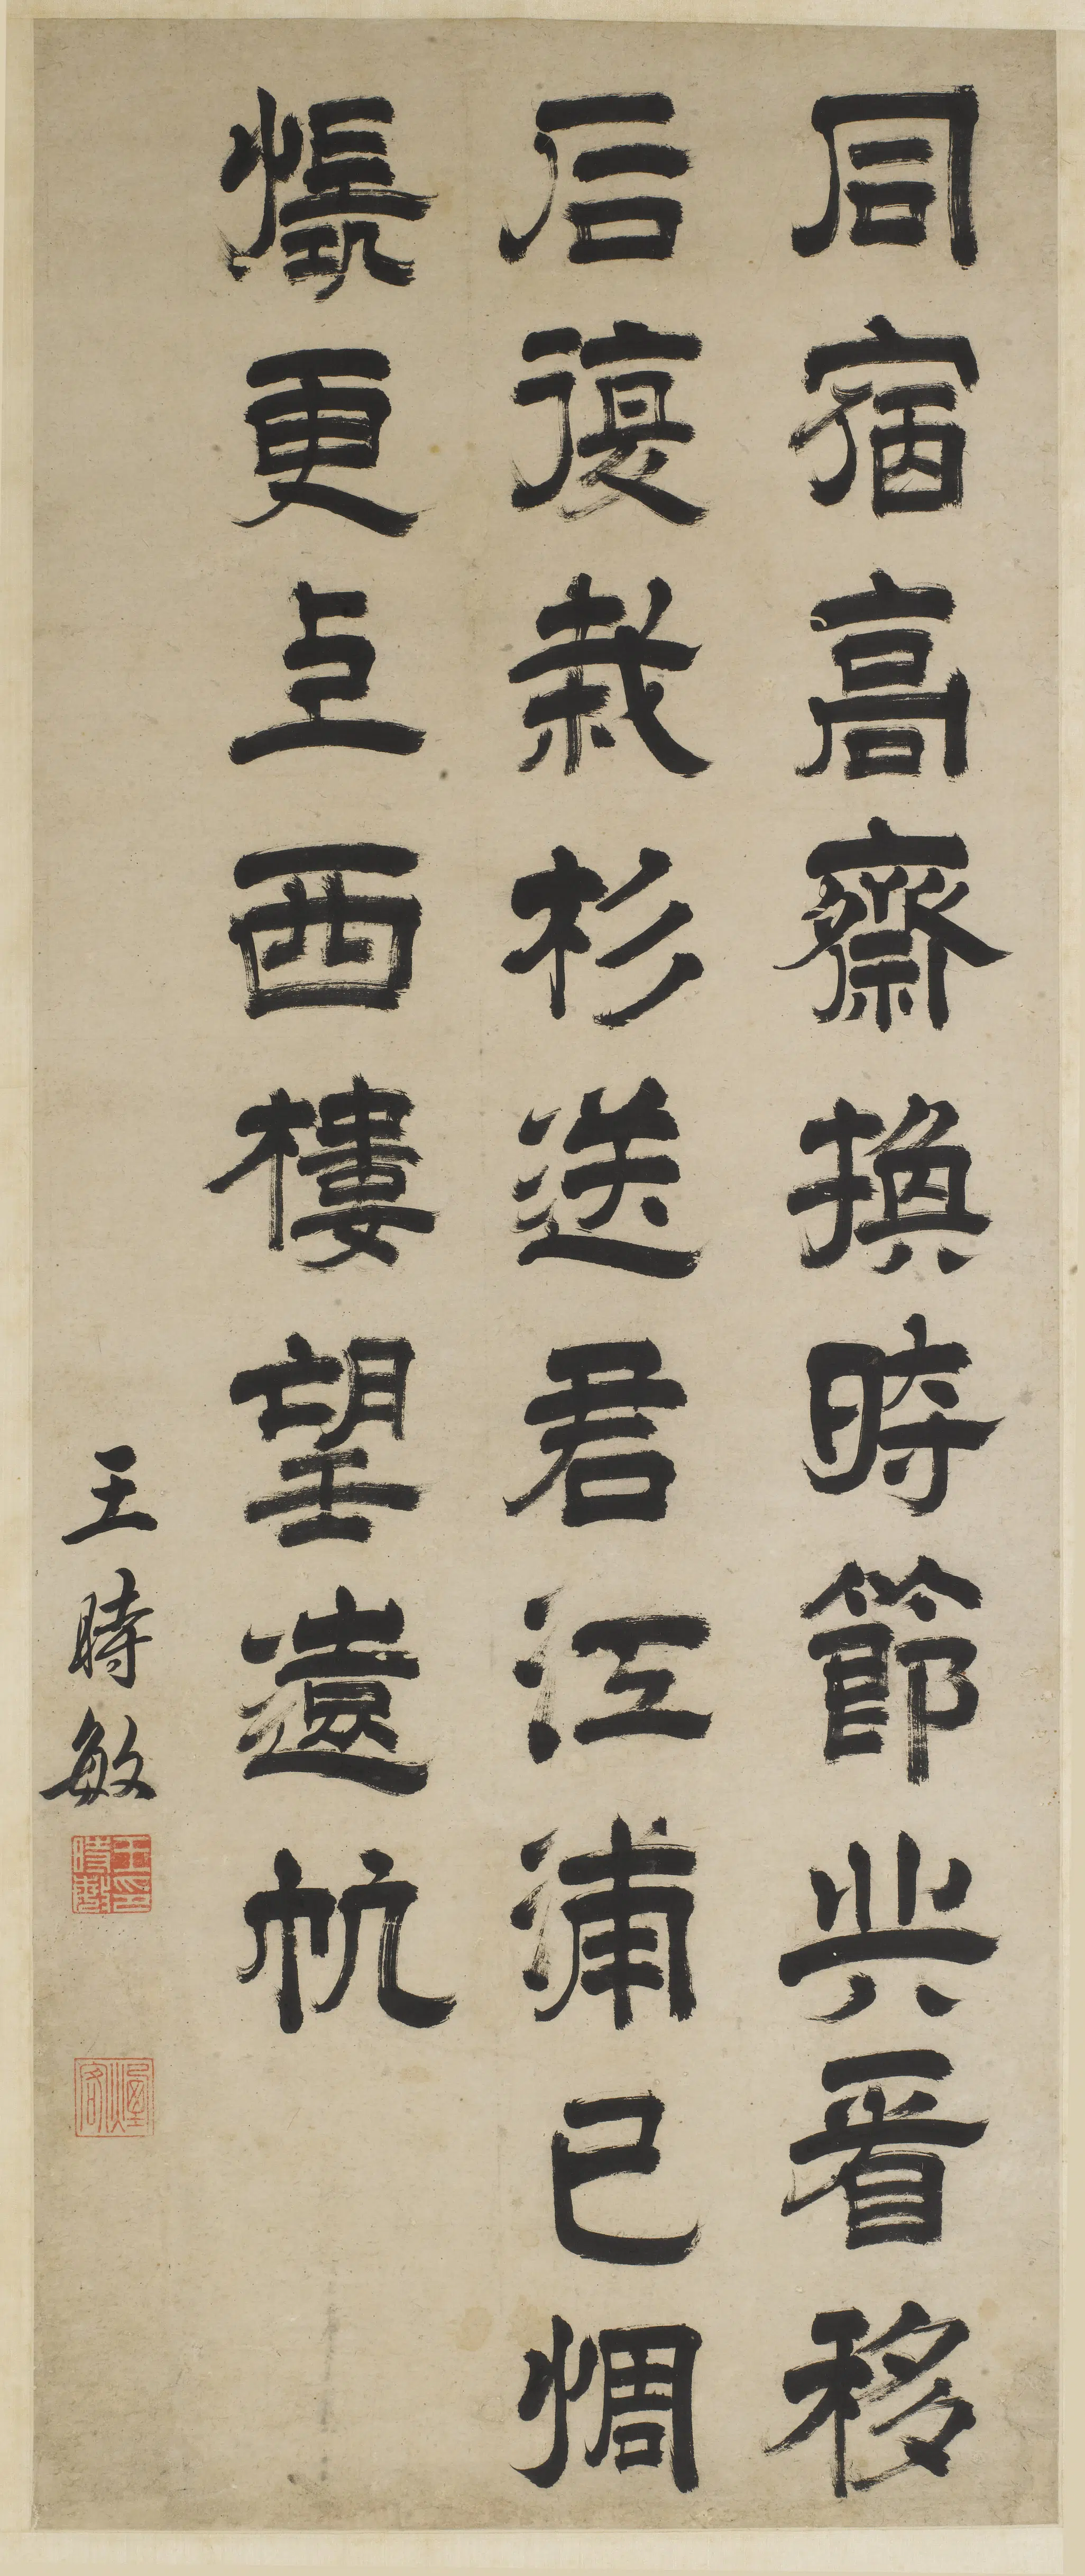 同宿高齋換時節共看移
石復栽杉送君江浦已惆
悵更上西樓望遠帆
王時敏
王印時敏
煙客